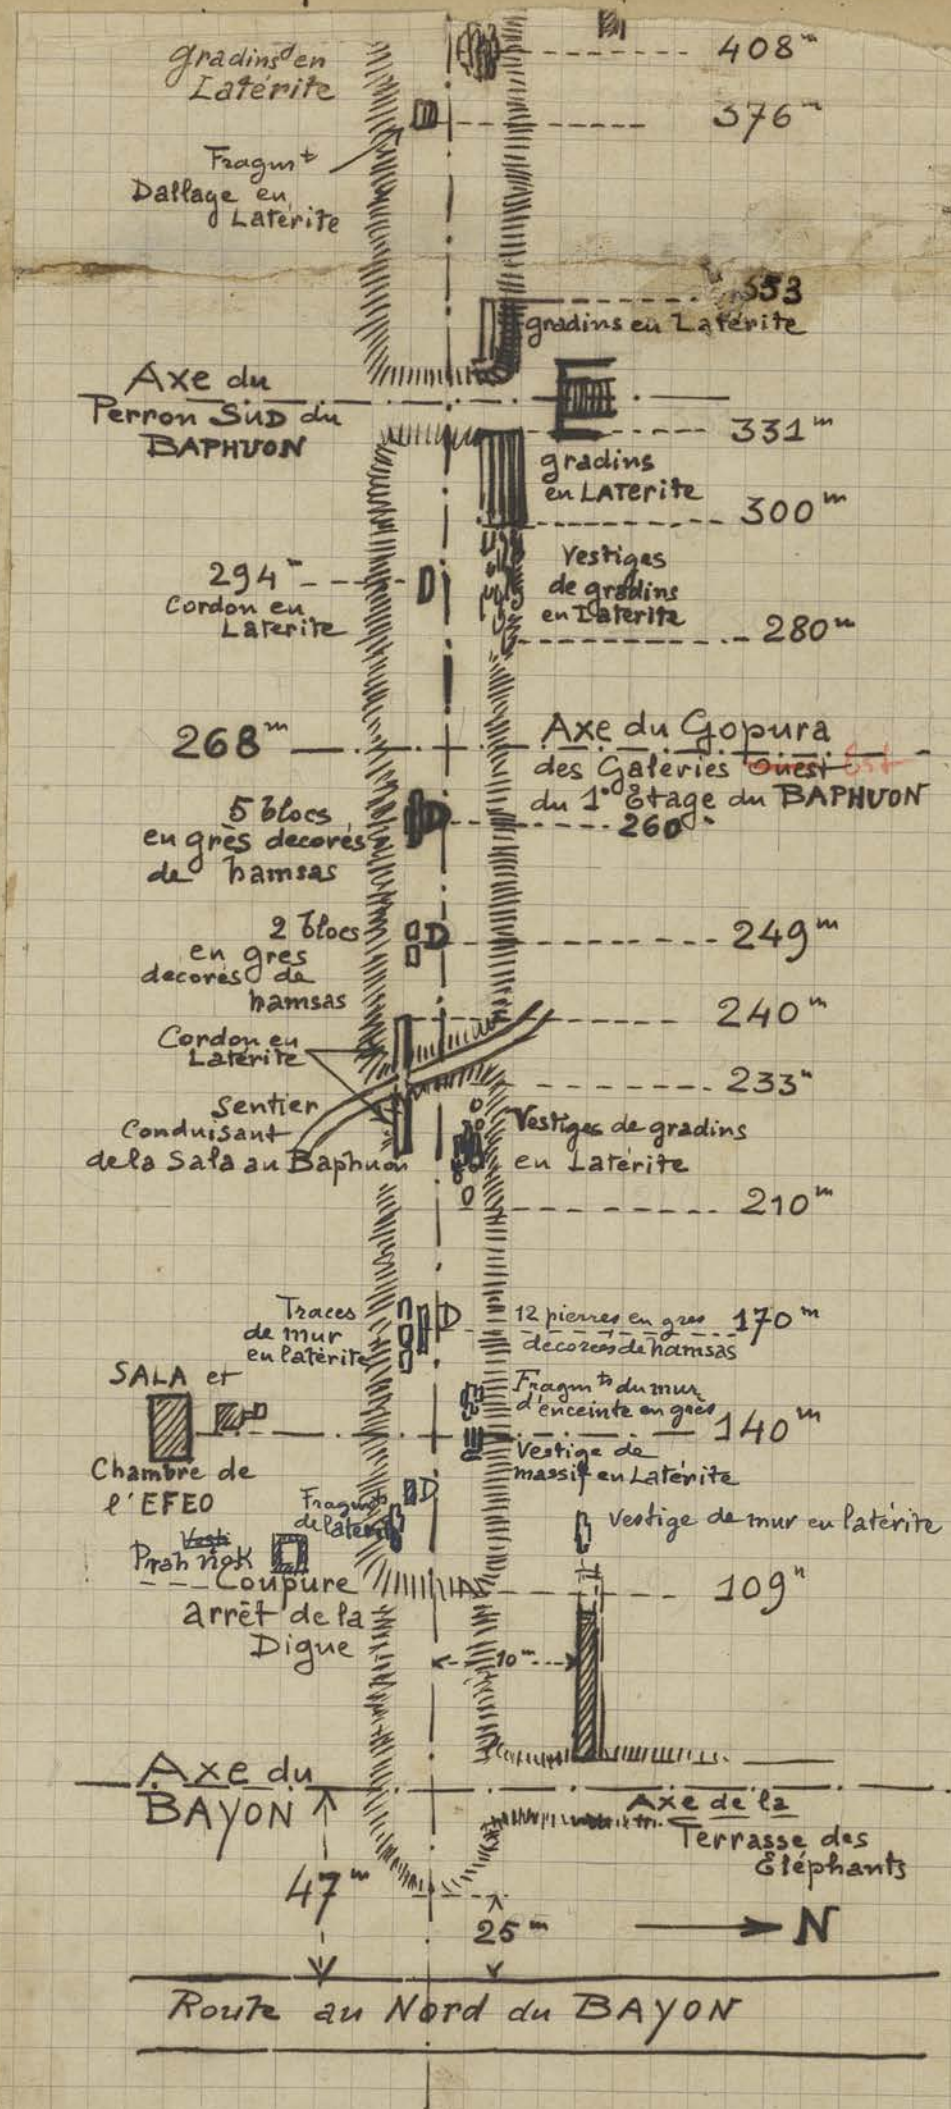 gradins en
Latérite
408m
376m
Fragmt
Dallage en
Latérite
353
gradins en Latérite
Axe du
Perron SUD du
BAPHUON
331m
gradins
en LATerite
300m
Vestiges
de gradins
en Laterite
294m
Cordon en
Laterite
280m
268m
Axe du Gopura
des Galeries Ouest Est
du 1° Etage du BAPHUON
5 blocs
en grès decorés
de hamsas
260m
2 blocs
en gres
decorés de
hamsas
249m
240m
Cordon en
Laterite
233m
Sentier
Conduisant
de la Sala au Baphuon
Vestiges de gradins
en Latérite
210m
Traces
de mur
en latèrite
12 pierres en gres
décorées de hamsas
170m
SALA et
Chambre de
l'EFEO
Fragmts du mur
d'enceinte en grès
140m
Vestige de
massif en Latérite
Fragmts
de laterite
Vestige de mur en latérite
Vesti
Prah
Coupure
arrêt de la
Digue
109m
10m
Axe du
BAYON
Axe de la
Terrasse des
Eléphants
47m
25m
N
Route au Nord du BAYON